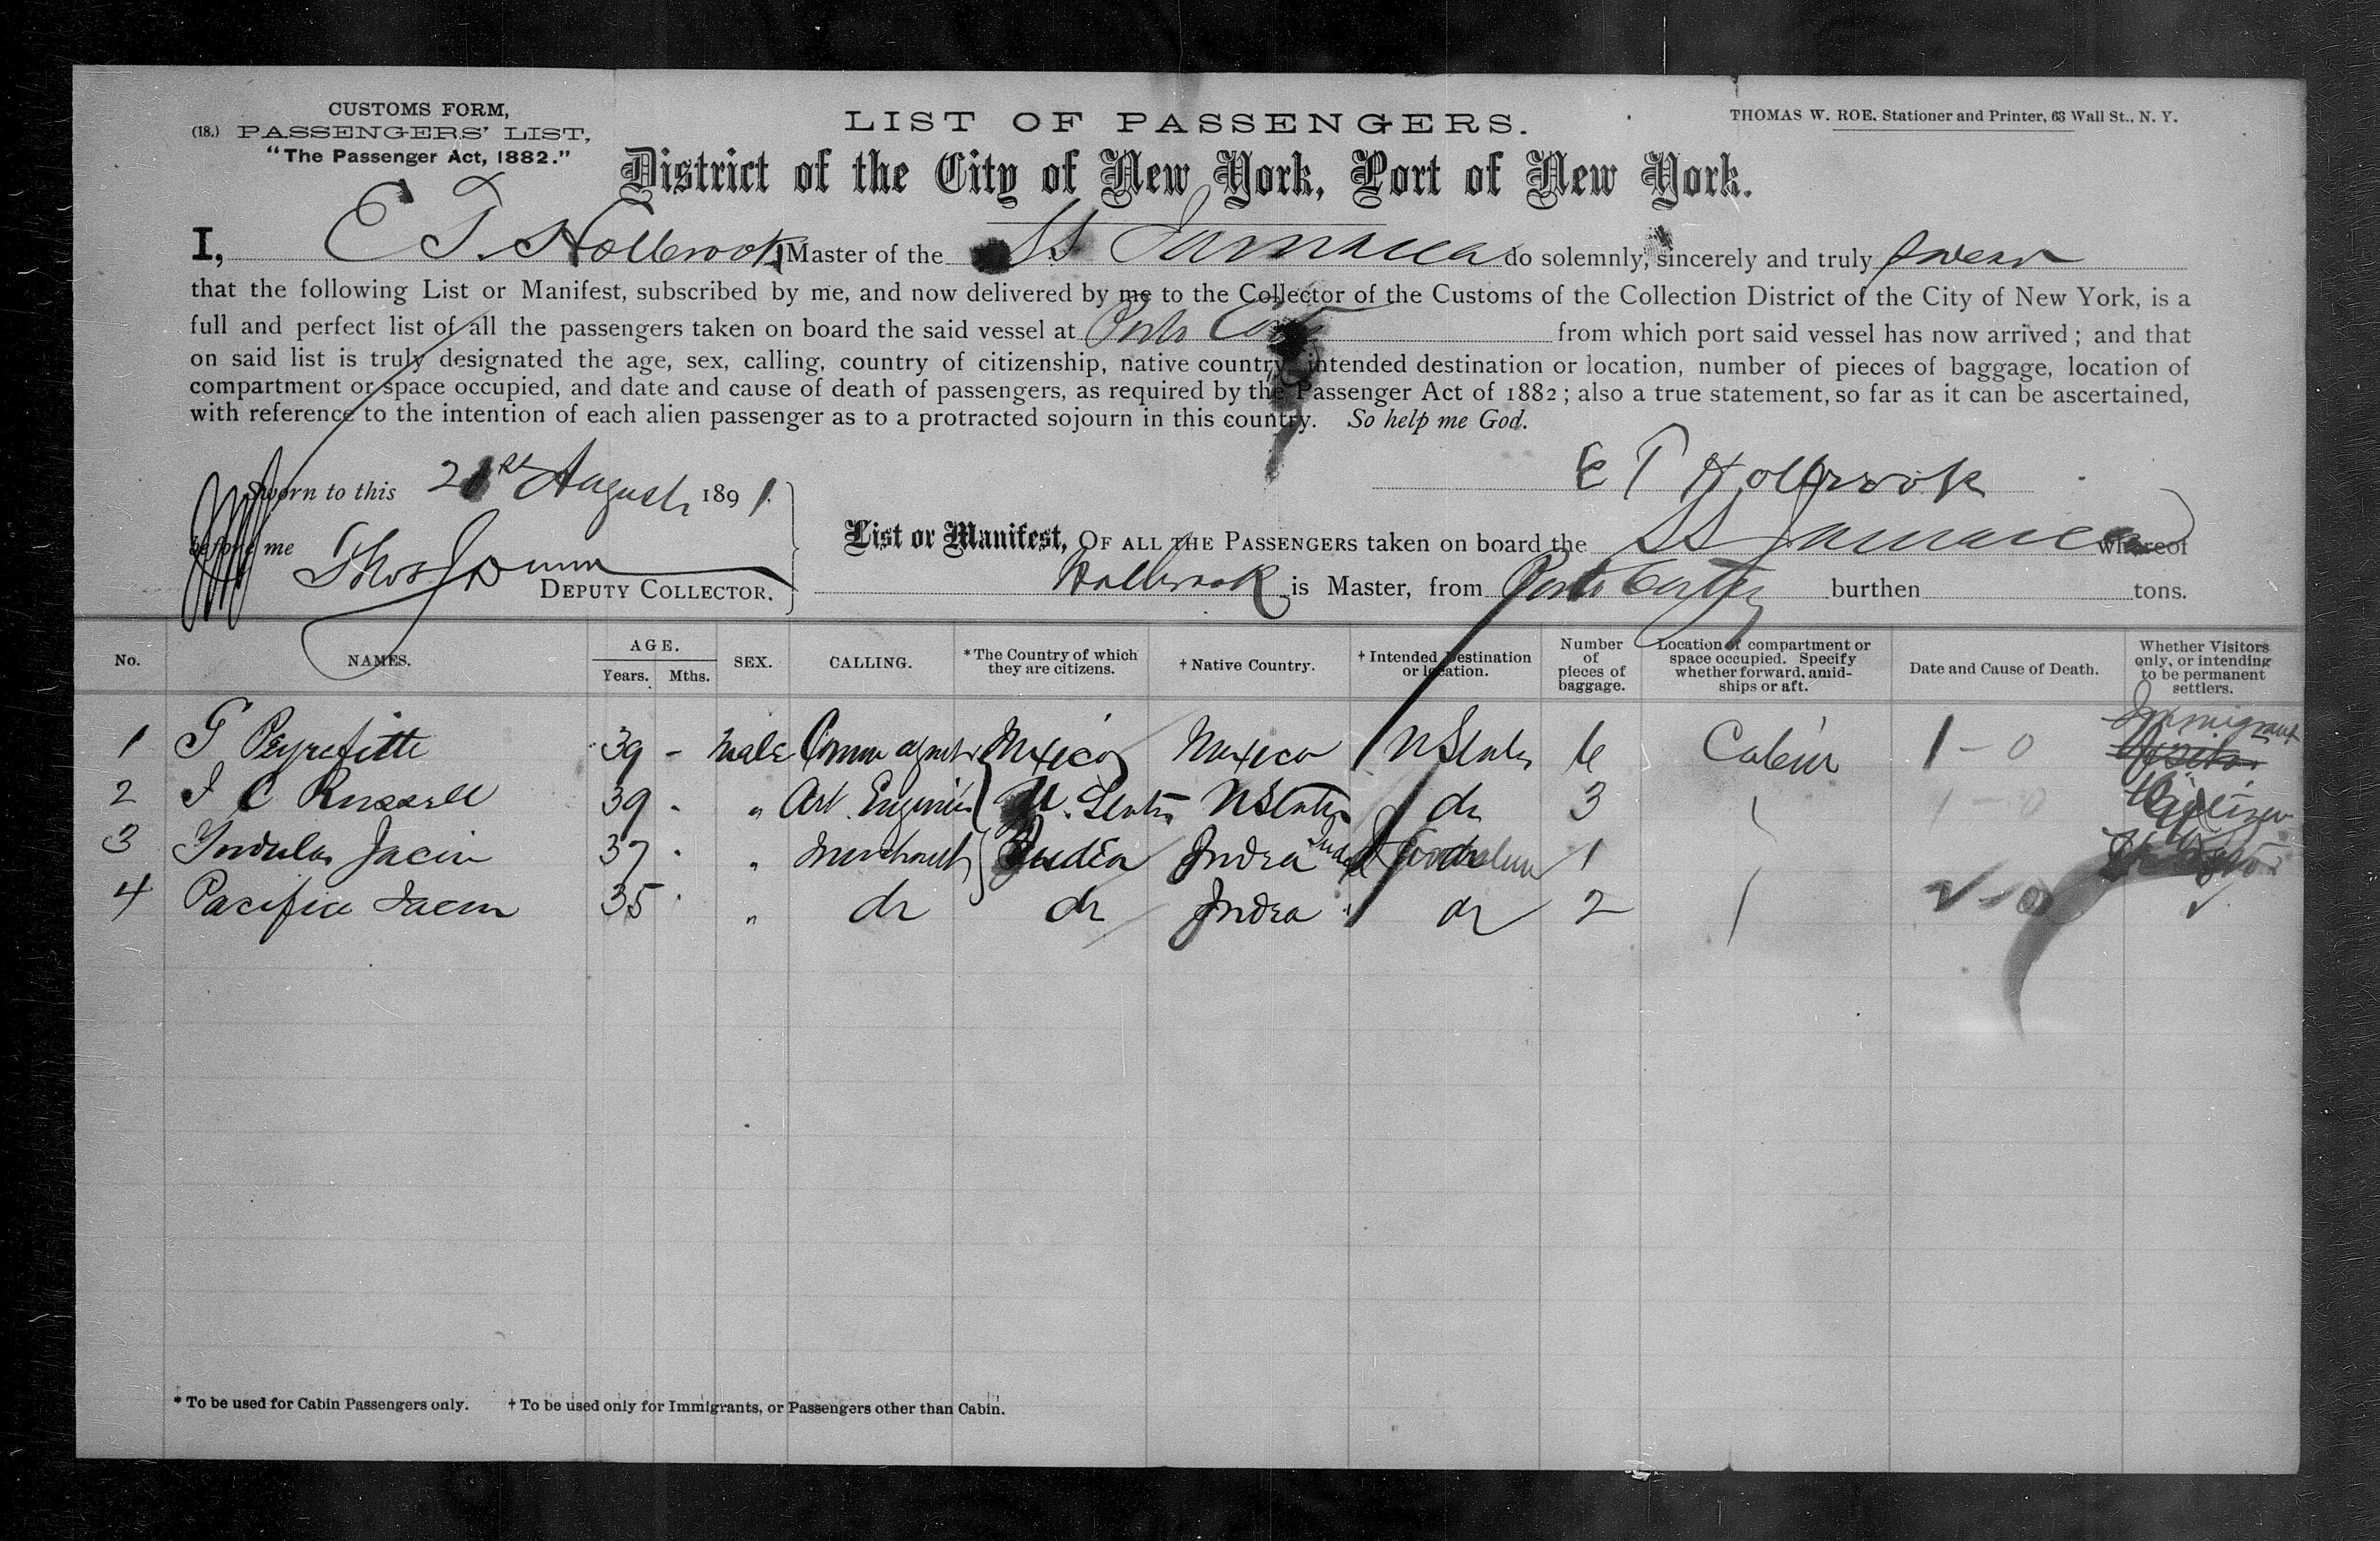 CUSTOMS FORM,
(18.) PASSENGERS' LIST,
"The Passenger Act, 1882."
LIST OF PASSENGERS.
THOMAS W. ROE. Stationer and Printer, 63 Wall St., N. Y.
District of the City of New York, Port of New York.
I, E T Holbrook Master of the SS Jamaica do solemnly, sincerely and truly swear
that the following List or Manifest, subscribed by me, and now delivered by me to the Collector of the Customs of the Collection District of the City of New York, is a
full and perfect list of all the passengers taken on board the said vessel at Porto from which port said vessel has now arrived; and that
on said list is truly designated the age, sex, calling, country of citizenship, native country, intended destination or location, number of pieces of baggage, location of
compartment or space occupied, and date and cause of death of passengers, as required by the Passenger Act of 1882; also a true statement, so far as it can be ascertained,
with reference to the intention of each alien passenger as to a protracted sojourn in this country. So help me God.
E T Holbrook
Sworn to this 21st August 1891
before me Thos J Dunn
DEPUTY COLLECTOR.
List or Manifest, OF ALL THE PASSENGERS taken on board the SS Jamaica whereof
Holbrook is Master, from Porto Cortez burthen tons.
No. NAMES. AGE. Years. Mths. SEX. CALLING. * The Country of which they are citizens. † Native Country. † Intended Destination or location. Number of pieces of baggage. Location of compartment or space occupied. Specify whether forward, amidships or aft. Date and Cause of Death. Whether Visitors only, or intending to be permanent settlers.
Immigrant
1 G Peyrefitte 39 - male Comm agent Mexico Mexico U States 6 Cabin 1 - 0
2 J C Russell 39 " Engineer U. States U States do 3 1 - 0 Citizen
3 Jacir 37 " Merchant India India 1
4 Pacifico Jacir 35 " do do India do 2 2 - 0
* To be used for Cabin Passengers only. † To be used only for Immigrants, or Passengers other than Cabin.